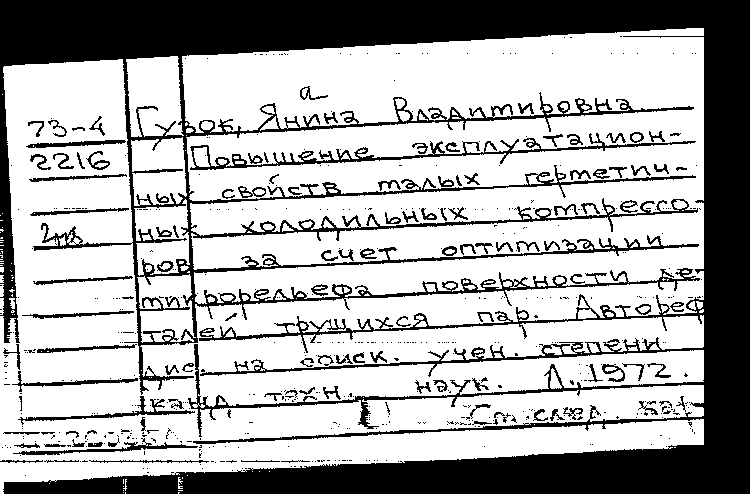 а
73-4 Гузок, Янина Владимировна
2216 Повышение эксплуатацион-
ных свойств малых герметич-
ных холодильных компрессо-
ров за счет оптимизации
микрорельефа поверхности де-
талей трущихся пар. Автореф
дис. на соиск. учен. степени
канд. техн. наук. Л., 1972.
См. след. кар